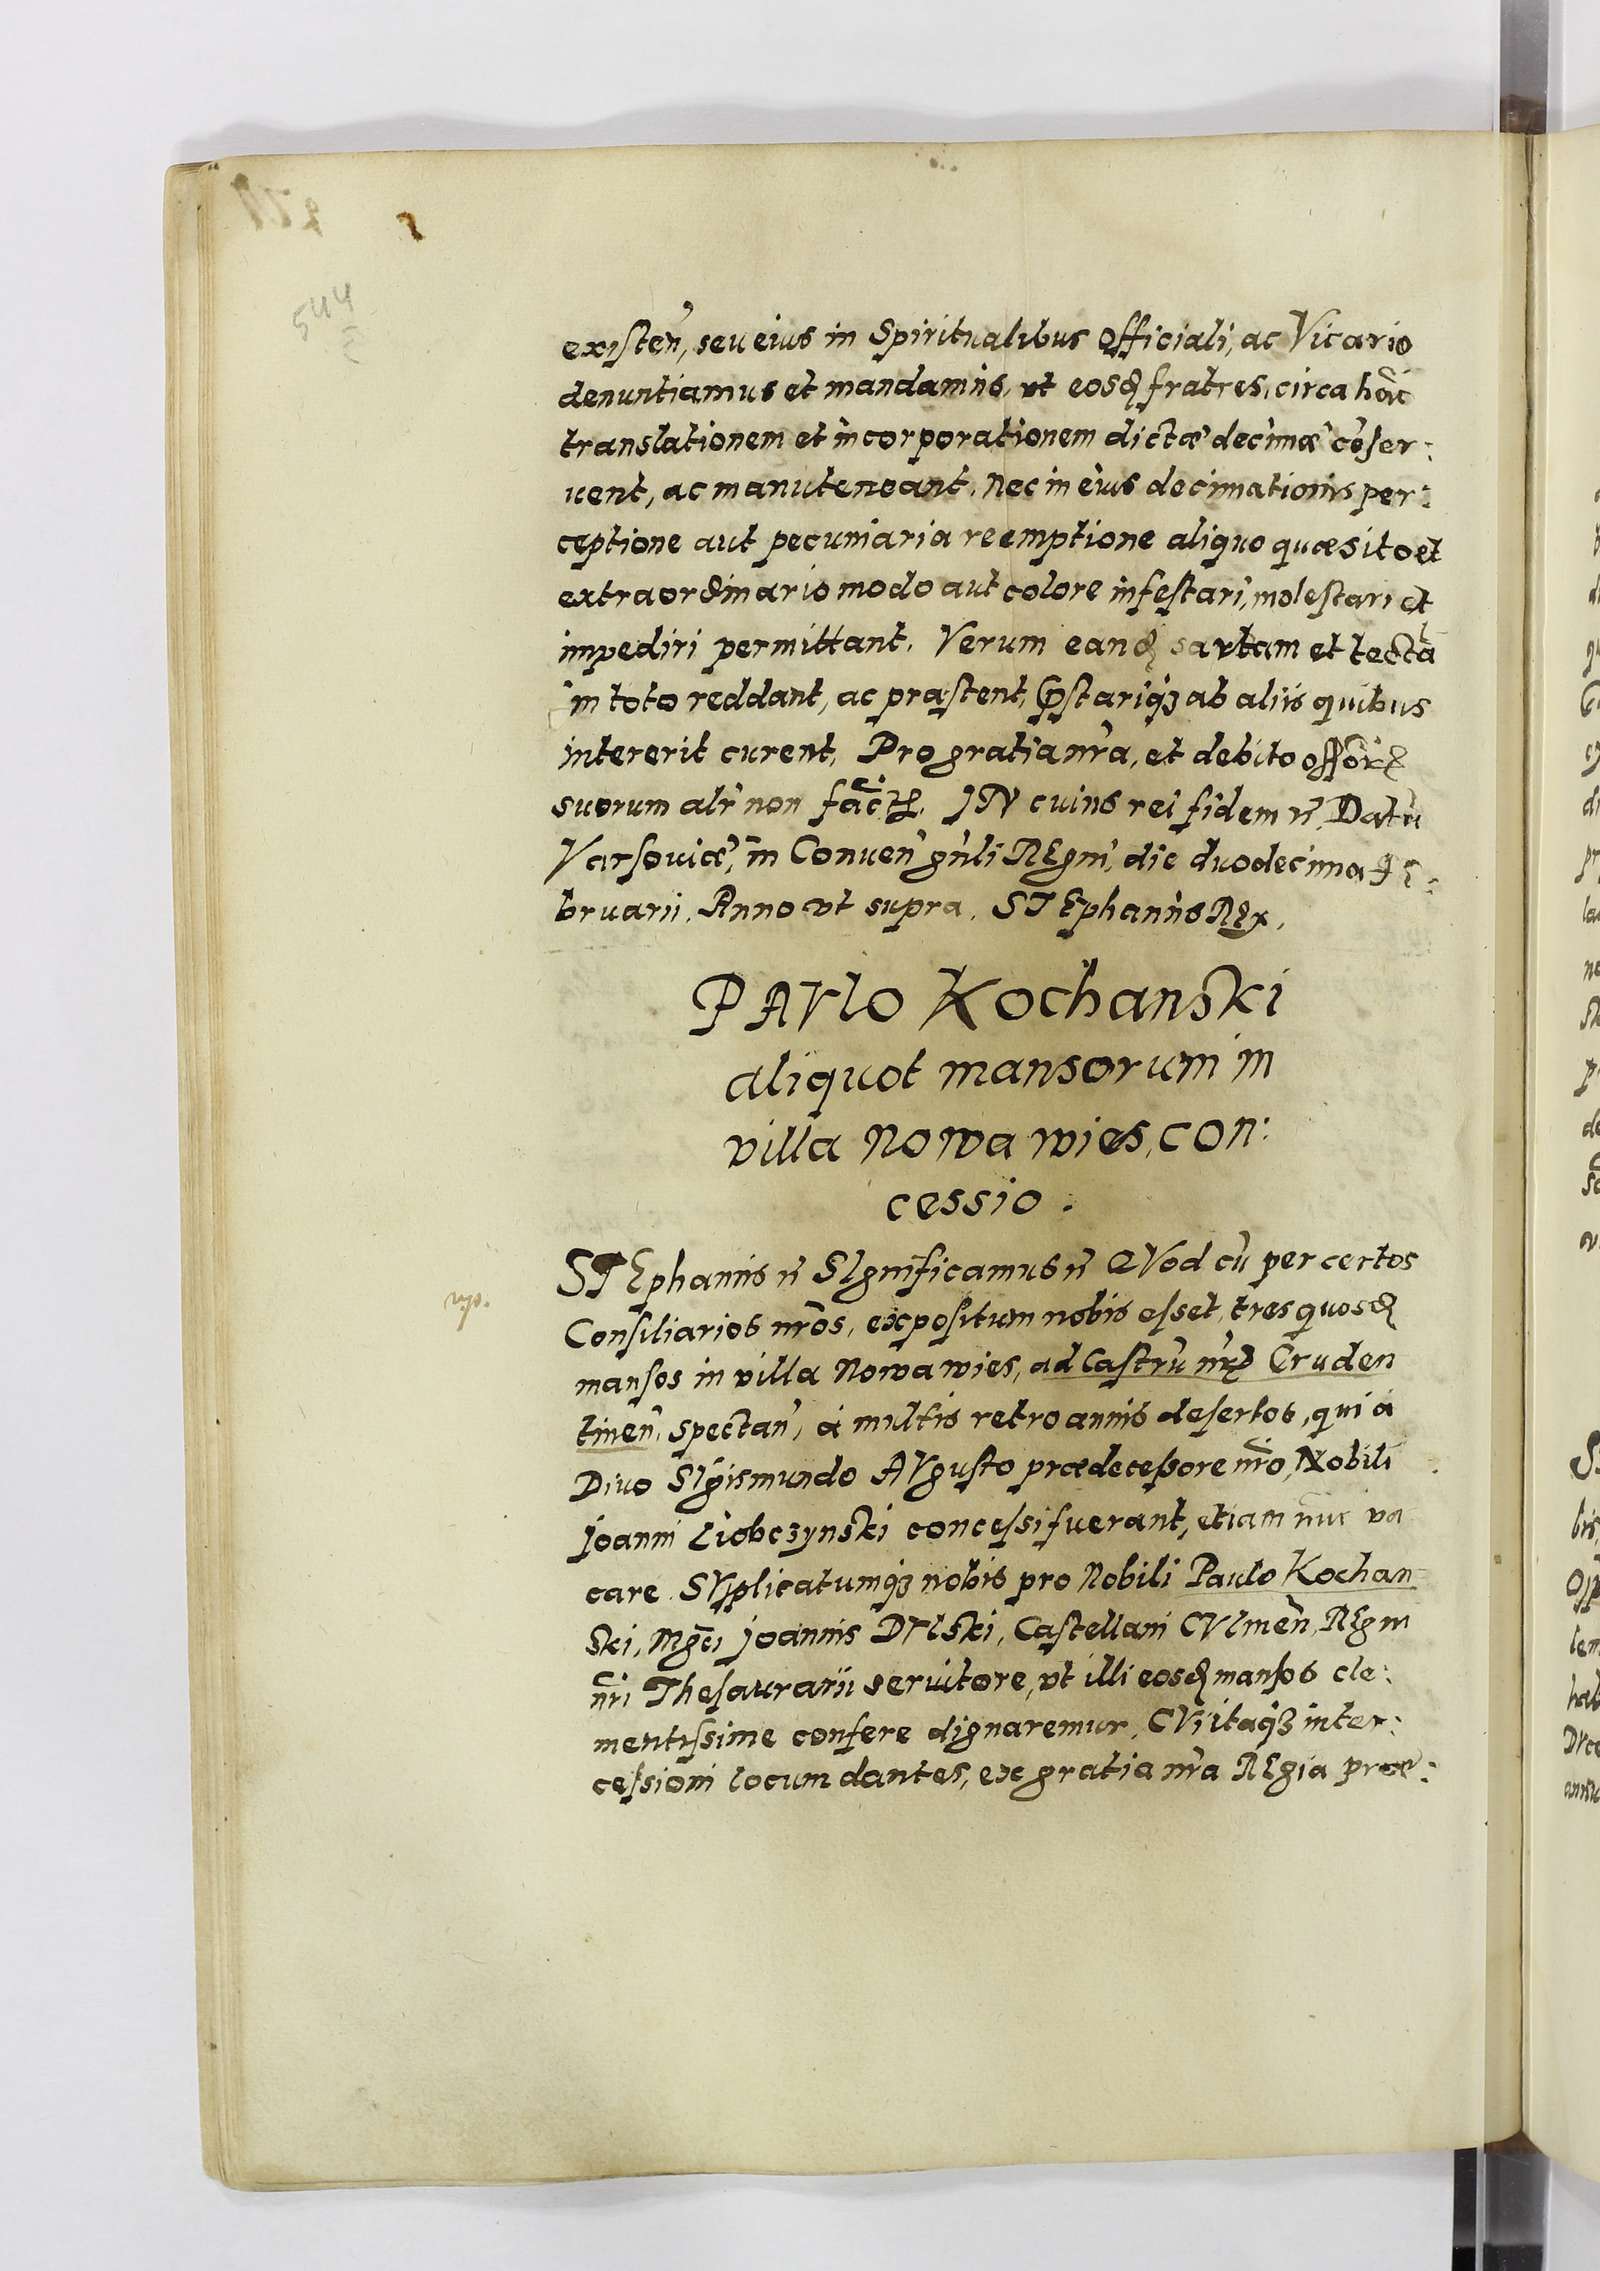 544
existen̄, seu eius in Spiritualibus Officiali, ac Vicario
denuntiamus et mandamus, ut eosd. fratres, circa hāc
translationem et incorporationem dictæ decimæ cōser:
uent, ac manuteneant. Nec in eius decimationis per:
ceptione aut pecuniaria reemptione aliquo quæsito et
extraordinario modo aut colore infestari, molestari et
impediri permittant. Verum eand. sartam et tectā
in toto reddant, ac præstent, p̄stariq3 ab aliis quibus
intererit curent. Pro gratia nr̄a, et debito offōrꝝ
suorum alr̄ non factꝝ. IN cuius rei fidem rc̄. Datū
Varsouiæ, in Conuen̄ gn̄li REgni, die duodecima Fe:
bruarii. Anno ut supra. STEphanus REx.
PAVlo Kochanski
aliquot mansorum in
villa Nowawies, con:
cessio.
STEphanus rc̄ SIgnificamus rc̄ QVod cū per certos
Consiliarios nr̄os, expositum nobis esset, tres quosd.
mansos in villa Nowawies, ad Castrū nr̄ꝝ Gruden
tinen̄, spectan̄, à multis retro annis desertos, qui à
Diuo SIgismundo AVgusto prædecessore nr̄o, Nobili
Joanni Liobczynski concessi fuerant, etiam nūc va
care. SVpplicatumq3 nobis pro Nobili Paulo Kochan
ski, Mgc̄i Joannis DVlski, Castellani CVlmen̄, REgni
nr̄i Thesaurarii seruitore, ut illi eosd. mansos cle:
mentissime confere dignaremur. CVi itaq3 inter:
cessioni locum dantes, ex gratia nr̄a REgia præ: